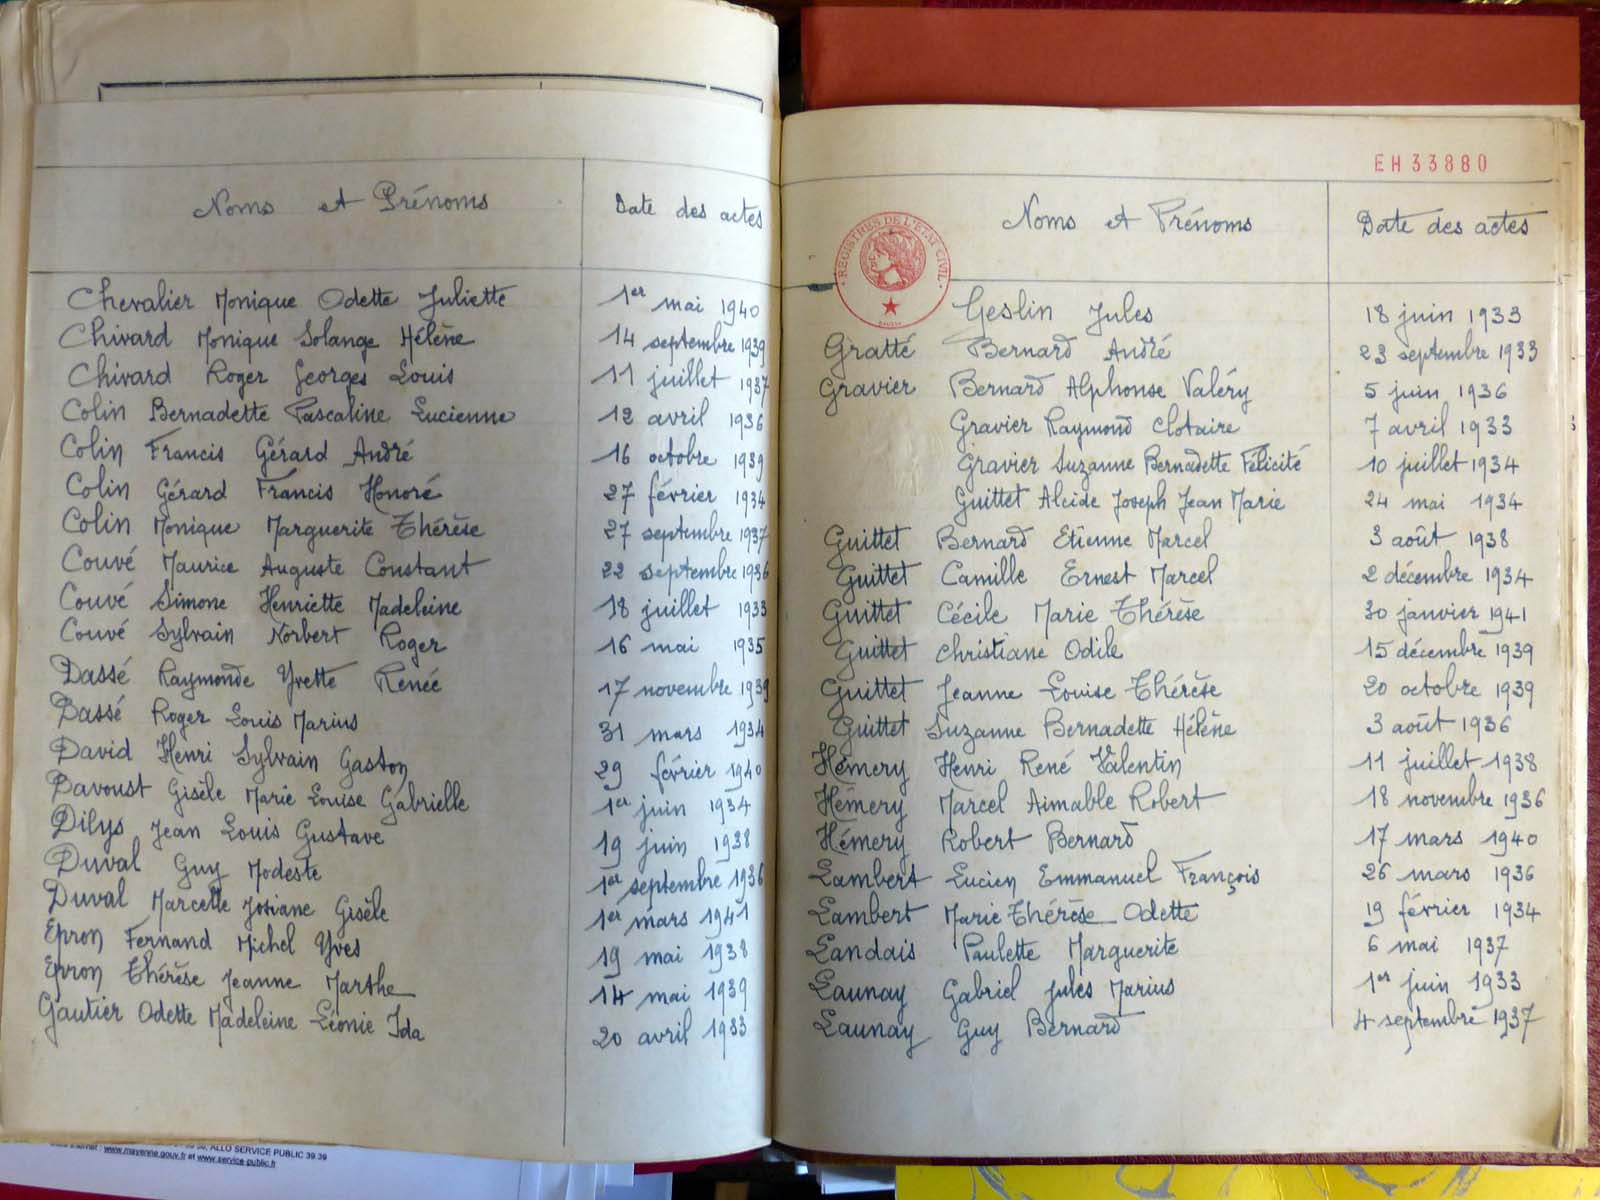 Noms et Prénoms Date des actes
Chevalier Monique Odette Juliette 1er mai 1940
Chivard Monique Solange Hélène 14 septembre 1939
Chivard Roger Georges Louis 11 juillet 1937
Colin Bernadette Pascaline Lucienne 12 avril 1936
Colin Francis Gérard André 16 octobre 1939
Colin Gérard Francis Honoré 27 février 1934
Colin Monique Marguerite Thérèse 27 septembre 1937
Couvé Maurice Auguste Constant 22 septembre 1936
Couvé Simone Henriette Madeleine 18 juillet 1933
Couvé Sylvain Norbert Roger 16 mai 1935
Dassé Raymonde Yvette Renée 17 novembre 1939
Dassé Roger Louis Marius 31 mars 1934
David Henri Sylvain Gaston 29 février 1940
Davoust Gisèle Marie Louise Gabrielle 1er juin 1934
Dilys Jean Louis Gustave 19 juin 1938
Duval Guy Modeste 1er septembre 1936
Duval Marcelle Josiane Gisèle 1er mars 1941
Epron Fernand Michel Yves 19 mai 1938
Epron Thérèse Jeanne Marthe 14 mai 1939
Gautier Odette Madeleine Léonie Ida 20 avril 1933
ALLO SERVICE PUBLIC 39 39
www.mayenne.gouv.fr et www.service-public.fr
EH33880
Noms et Prénoms Date des actes
REGISTRES DE L'ETAT CIVIL
Geslin Jules 18 juin 1933
Gratté Bernard André 23 septembre 1933
Gravier Bernard Alphonse Valéry 5 juin 1936
Gravier Raymond Clotaire 7 avril 1933
Gravier Suzanne Bernadette Félicité 10 juillet 1934
Guittet Alcide Joseph Jean Marie 24 mai 1934
Guittet Bernard Etienne Marcel 3 août 1938
Guittet Camille Ernest Marcel 2 décembre 1934
Guittet Cécile Marie Thérèse 30 janvier 1941
Guittet Christiane Odile 15 décembre 1939
Guittet Jeanne Louise Thérèse 20 octobre 1939
Guittet Suzanne Bernadette Hélène 3 août 1936
Hémery Henri René Valentin 11 juillet 1938
Hémery Marcel Aimable Robert 18 novembre 1936
Hémery Robert Bernard 17 mars 1940
Lambert Lucien Emmanuel François 26 mars 1936
Lambert Marie Thérèse Odette 19 février 1934
Landais Paulette Marguerite 6 mai 1937
Launay Gabriel Jules Marius 1er juin 1933
Launay Guy Bernard 4 septembre 1937